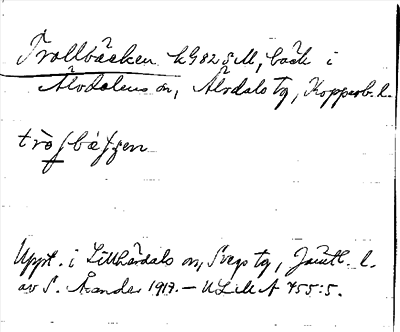 Trollbäcken kG82SM, bäck i
Älvdalens sn, Älvdals tg, Kopparb. l.
Uppt. i Lillhärdals sn, Svegs tg, Jämtl. l.
av S. Ärander 1917. – ULMA 755:5.